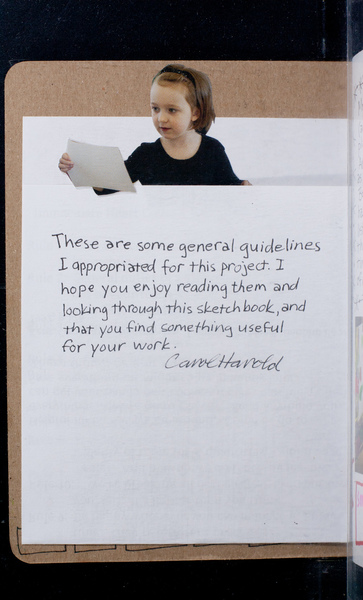 These are some general guidelines
I appropriated for this project. I
hope you enjoy reading them and
looking through this sketchbook, and
that you find something useful
for your work.
Carol Harold